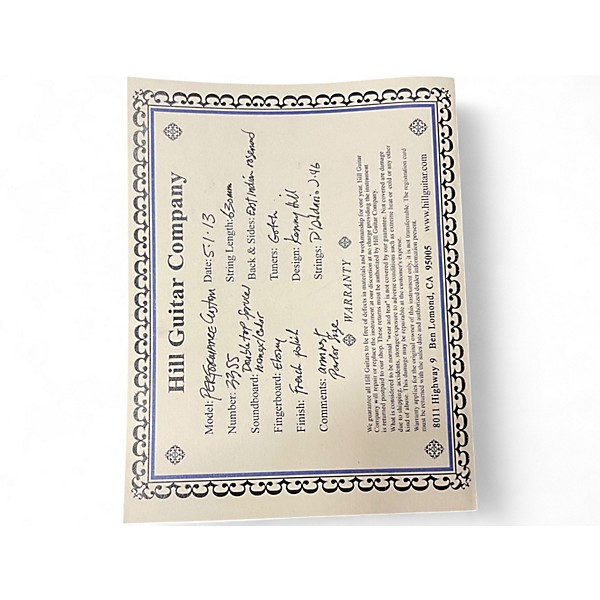 Hill Guitar Company
Model: Performance Custom Date: 5·1·13
Number: 3955 String Length: 630mm
Soundboard: Doubletop Spruce/ Nomex/Cedar Back & Sides: East Indian Rosewood
Fingerboard: Ebony Tuners: Gotoh
Finish: French polish Design: Kenny Hill
Comments: armrest Strings: D'Addario J-46
Parlor Size
WARRANTY
We guarantee all Hill Guitars to be free of defects in materials and workmanship for one year. Hill Guitar
Company will repair or replace the instrument at our discretion at no charge providing the instrument
is returned postpaid to our shop. These returns must be authorized by Hill Guitar Company.
What is considered to be normal "wear and tear" is not covered by our guarantee. Not covered are damage
due to shipping, accidents, storage/exposure to adverse conditions such as extreme heat or cold or any other
kind of abuse. This damage may be repairable at the customer's expense.
Warranty applies for the original owner of this instrument only, it is not transferable. The registration card
must be returned with the sales date and authorized dealer information present.
8011 Highway 9 Ben Lomond, CA 95005 www.hillguitar.com